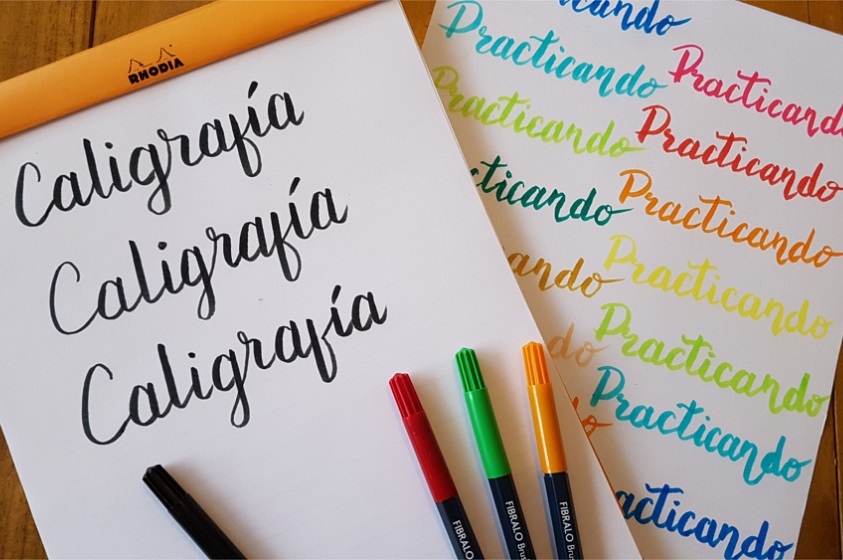 RHODIA
Caligrafía
Caligrafía
Caligrafía
cando
Practicando Practicando
Practicando Practicando
cticando Practicando
ando Practicando
do Practicando
Practicando
acticando
FIBRALO Brus
FIBRALO Brus
FIBRALO Brus